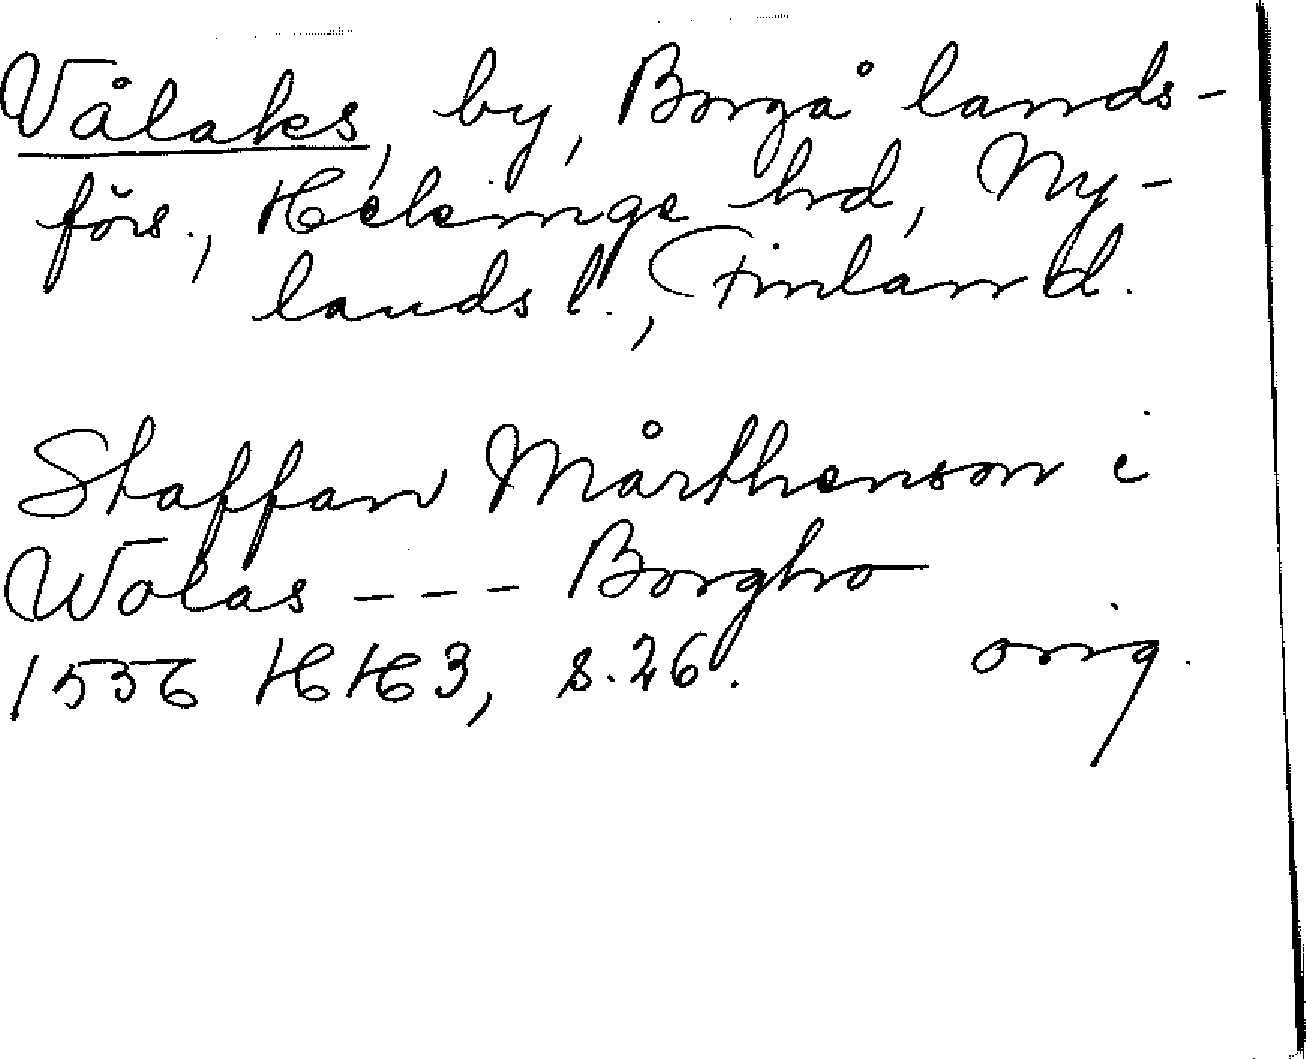 Vålaks, by, Borgå lands-
förs., Helsinge hrd, Ny-
lands l., Finland.
Staffan Mårthenson i
Wolas --- Borgho
1556 HH3, s. 26. orig.